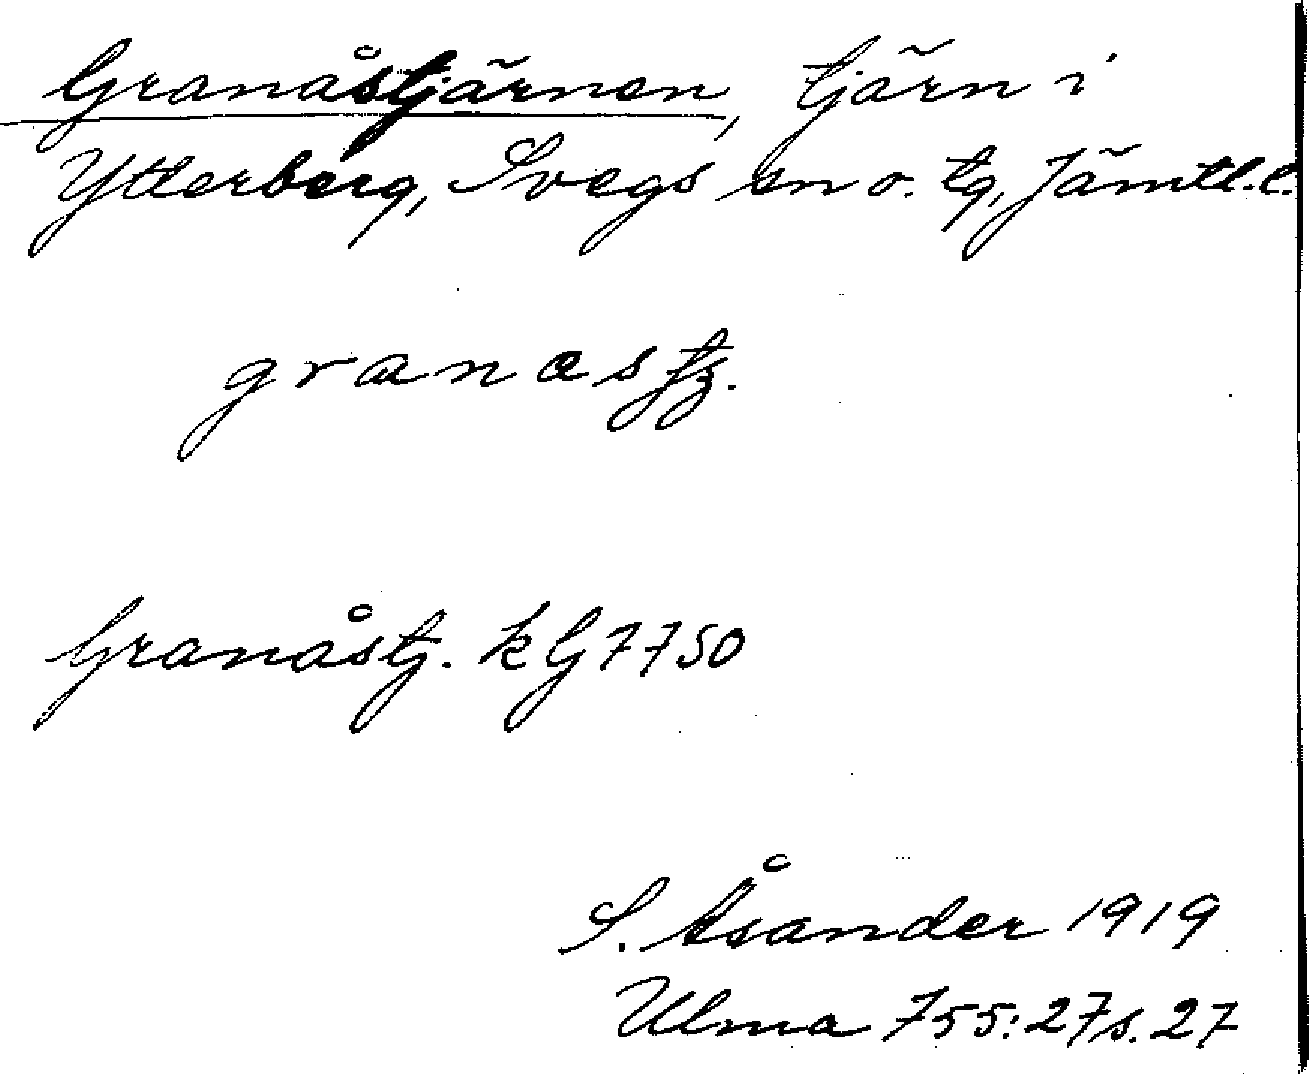 Granåstjärnen, tjärn i
Ytterberg, Svegs sn o. tg, Jämtl. l.
granastʒ.
Granåstj. k G 7750
S. Åsander 1919
Ulma 755:27 s. 27